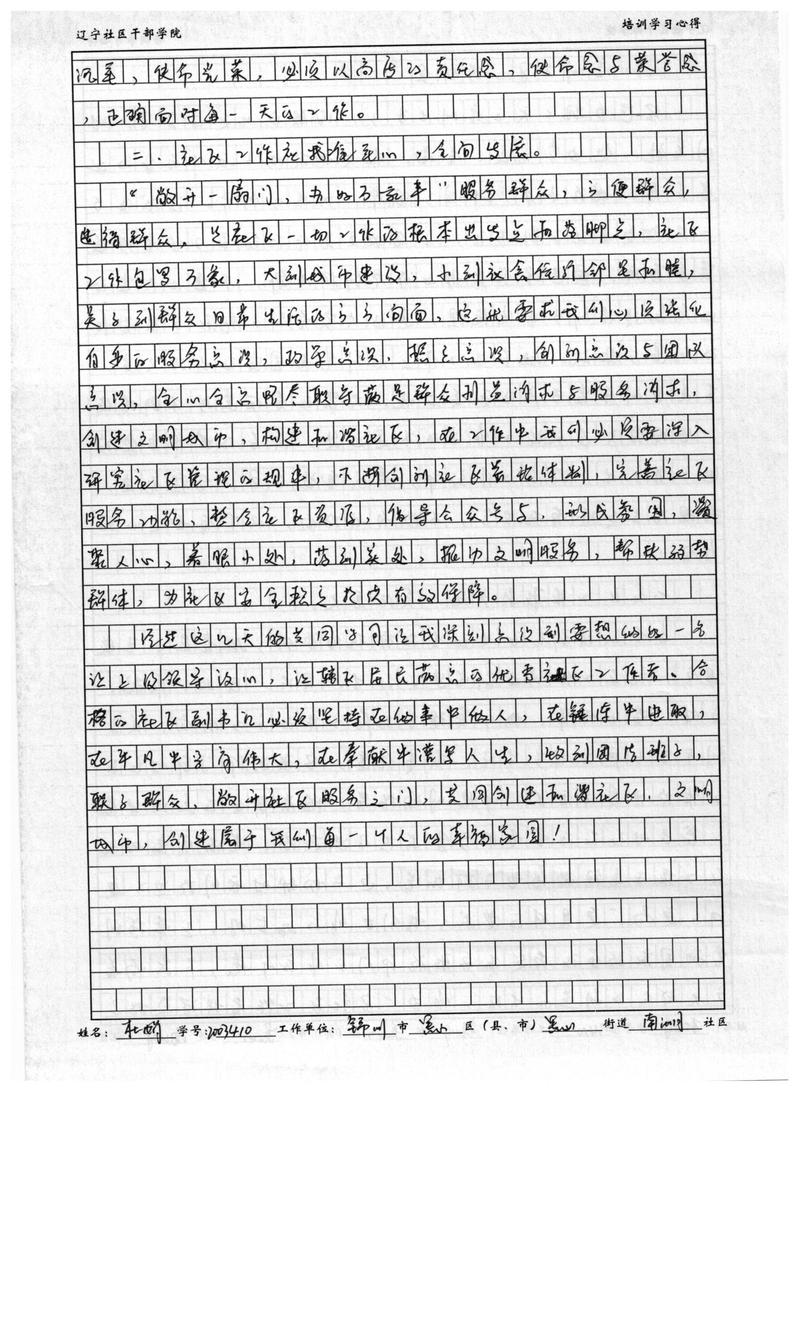 辽宁社区干部学院
培训学习心得
沉重，使命光荣，必须以高度的责任感，使命感与荣誉感
，正确面对每一天的工作。
二、社区工作在我
"敞开一扇门，办好万家事"服务群众，方便群众，
群众，是社区一切工作的根本出发点和落脚点，社区
工作包罗万象，大到城市建设，小到议会作行邻里和睦，
关系到群众日常生活的方方面面，这就要求我们必须强化
自身的服务意识，政策意识，意识，创新意识与团队
意识，全心全意尽职守满足群众利益诉求与服务诉求，
创建文明城市，构建和谐社区，在工作中我们必须要深入
研究社区管理的规律，不断创新社区管理体制，完善社区
服务功能，整合社区资源，倡导公众参与，凝
聚人心，着眼小处，落到实处，推动文明服务，帮扶弱势
群体，为社区安全稳定提供有效保障。
经过这几天的共同学习让我深刻意识到要想做好一名
让上级领导放心，让辖区居民满意的优秀社区工作者。合
格的社区副书记必须坚持在做事中做人，在中进取，
在平凡中孕育伟大，在奉献中谱写人生，做到团结班子，
联系群众，敞开社区服务之门，共同创建和谐社区，文明
城市，创建属于我们每一个人的幸福家园！
姓名： 杜 学号：2003410 工作单位： 锦州 市 黑山 区（县、市） 黑山 街道 南湖 社区